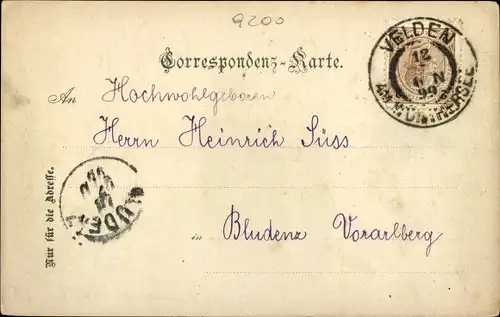 9200
VELDEN
12
99
AM WÖRTHERSEE
Correspondenz-Karte.
An Hochwohlgeboren
Herrn Heinrich Süss
in Bludenz Vorarlberg
Nur für die Adresse.